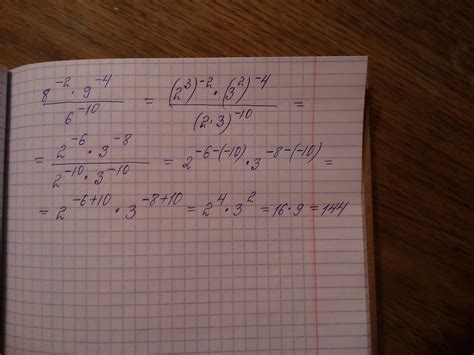 8^{-2} · 9^{-4} / 6^{-10} = (2^3)^{-2} · (3^2)^{-4} / (2·3)^{-10} =
= 2^{-6} · 3^{-8} / 2^{-10} · 3^{-10} = 2^{-6-(-10)} · 3^{-8-(-10)} =
= 2^{-6+10} · 3^{-8+10} = 2^4 · 3^2 = 16·9 = 144